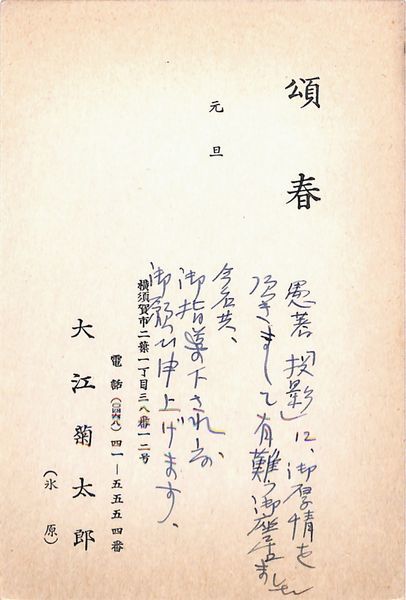 頌春
元旦
愚著「投影」に、御厚情を
頂きまして有難う御座いました
今后共、
御指導の下され度
御願い申上げます、
横須賀市二葉一丁目三八番一二号
電話(〇四六八)四一―五五五四番
大江菊太郎
(氷原)